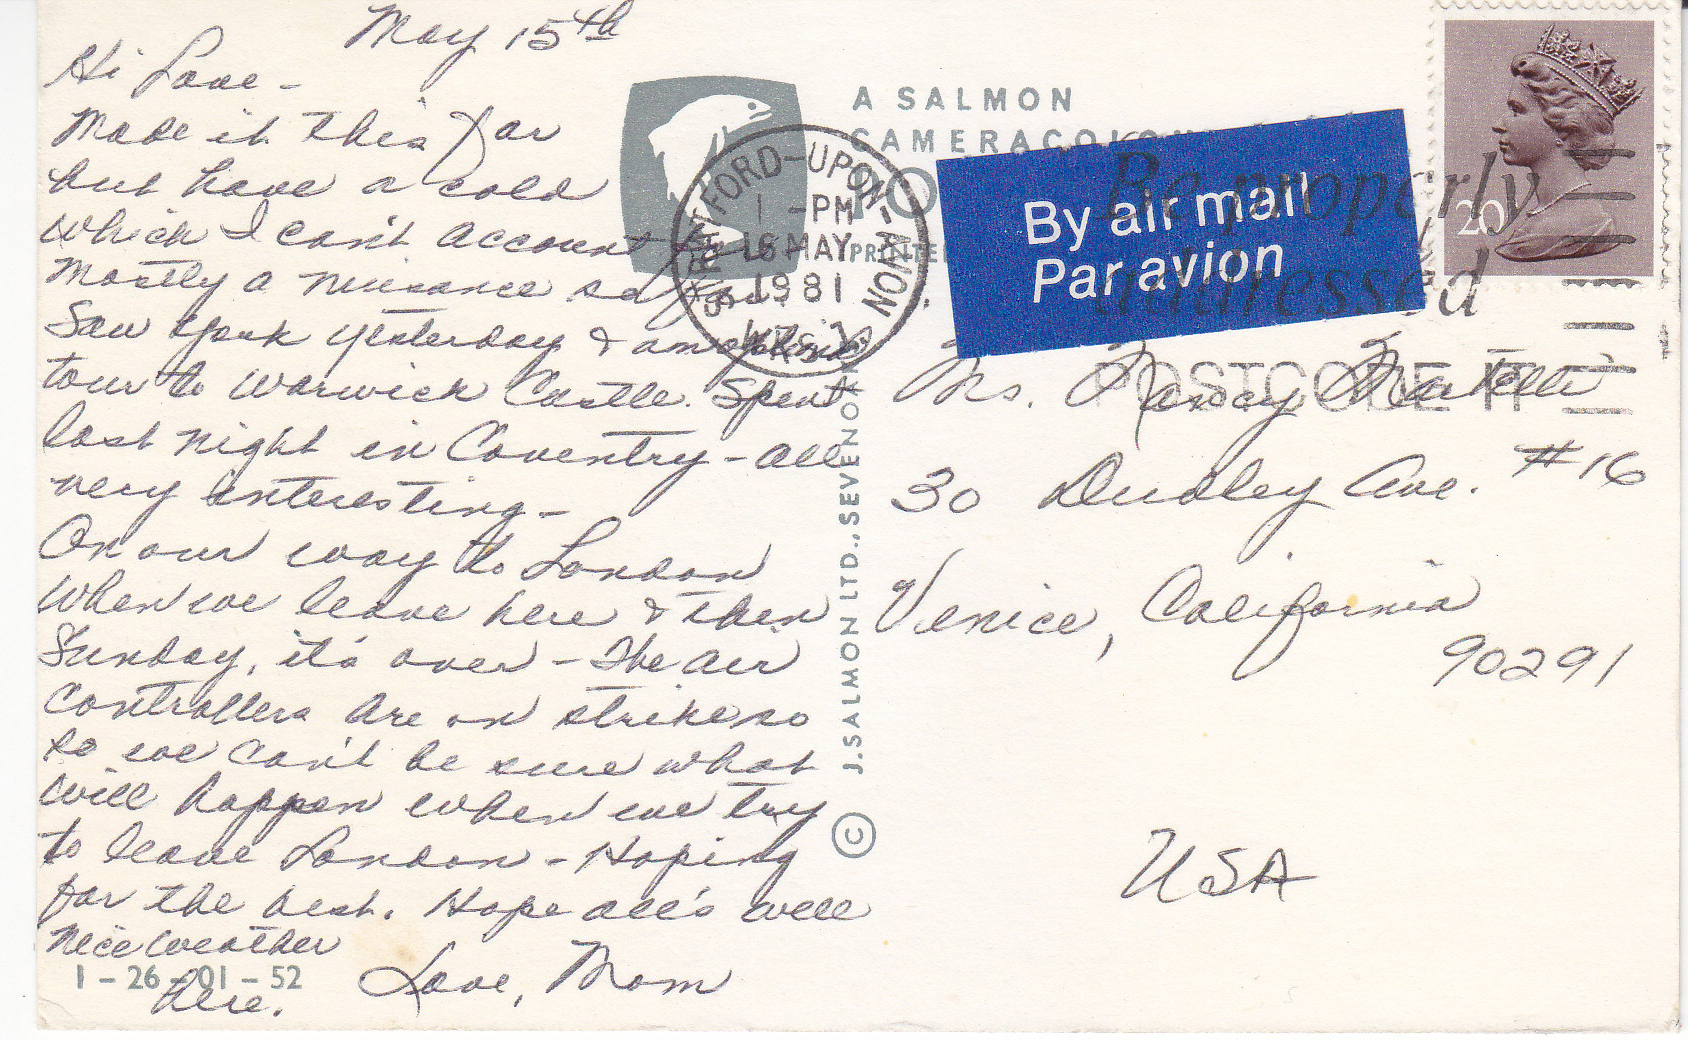 May 15th
Hi Love -
Made it this far
but have a cold
which I can't account for
Mostly a nuisance so far.
Saw York yesterday &
tour to Warwick Castle. Spent
last night in Coventry - all
very interesting -
On our way to London
when we leave here & then
Sunday, it's over - The air
controllers are on strike so
so we can't be sure what
will happen when we try
to leave London - Hoping
for the best. Hope all's well
Nice weather
here.
Love, Mom
1 - 26 - 01 - 52
A SALMON
CAMERACOLOUR
PO
PRINTE
STRATFORD-UPON-AVON
1 -PM
16 MAY
1981
J. SALMON LTD., SEVENOAKS
©
By air mail
Par avion
Be properly
addressed
POSTCODE IT
20
Nancy
30 Dudley Ave. #16
Venice, California
90291
USA